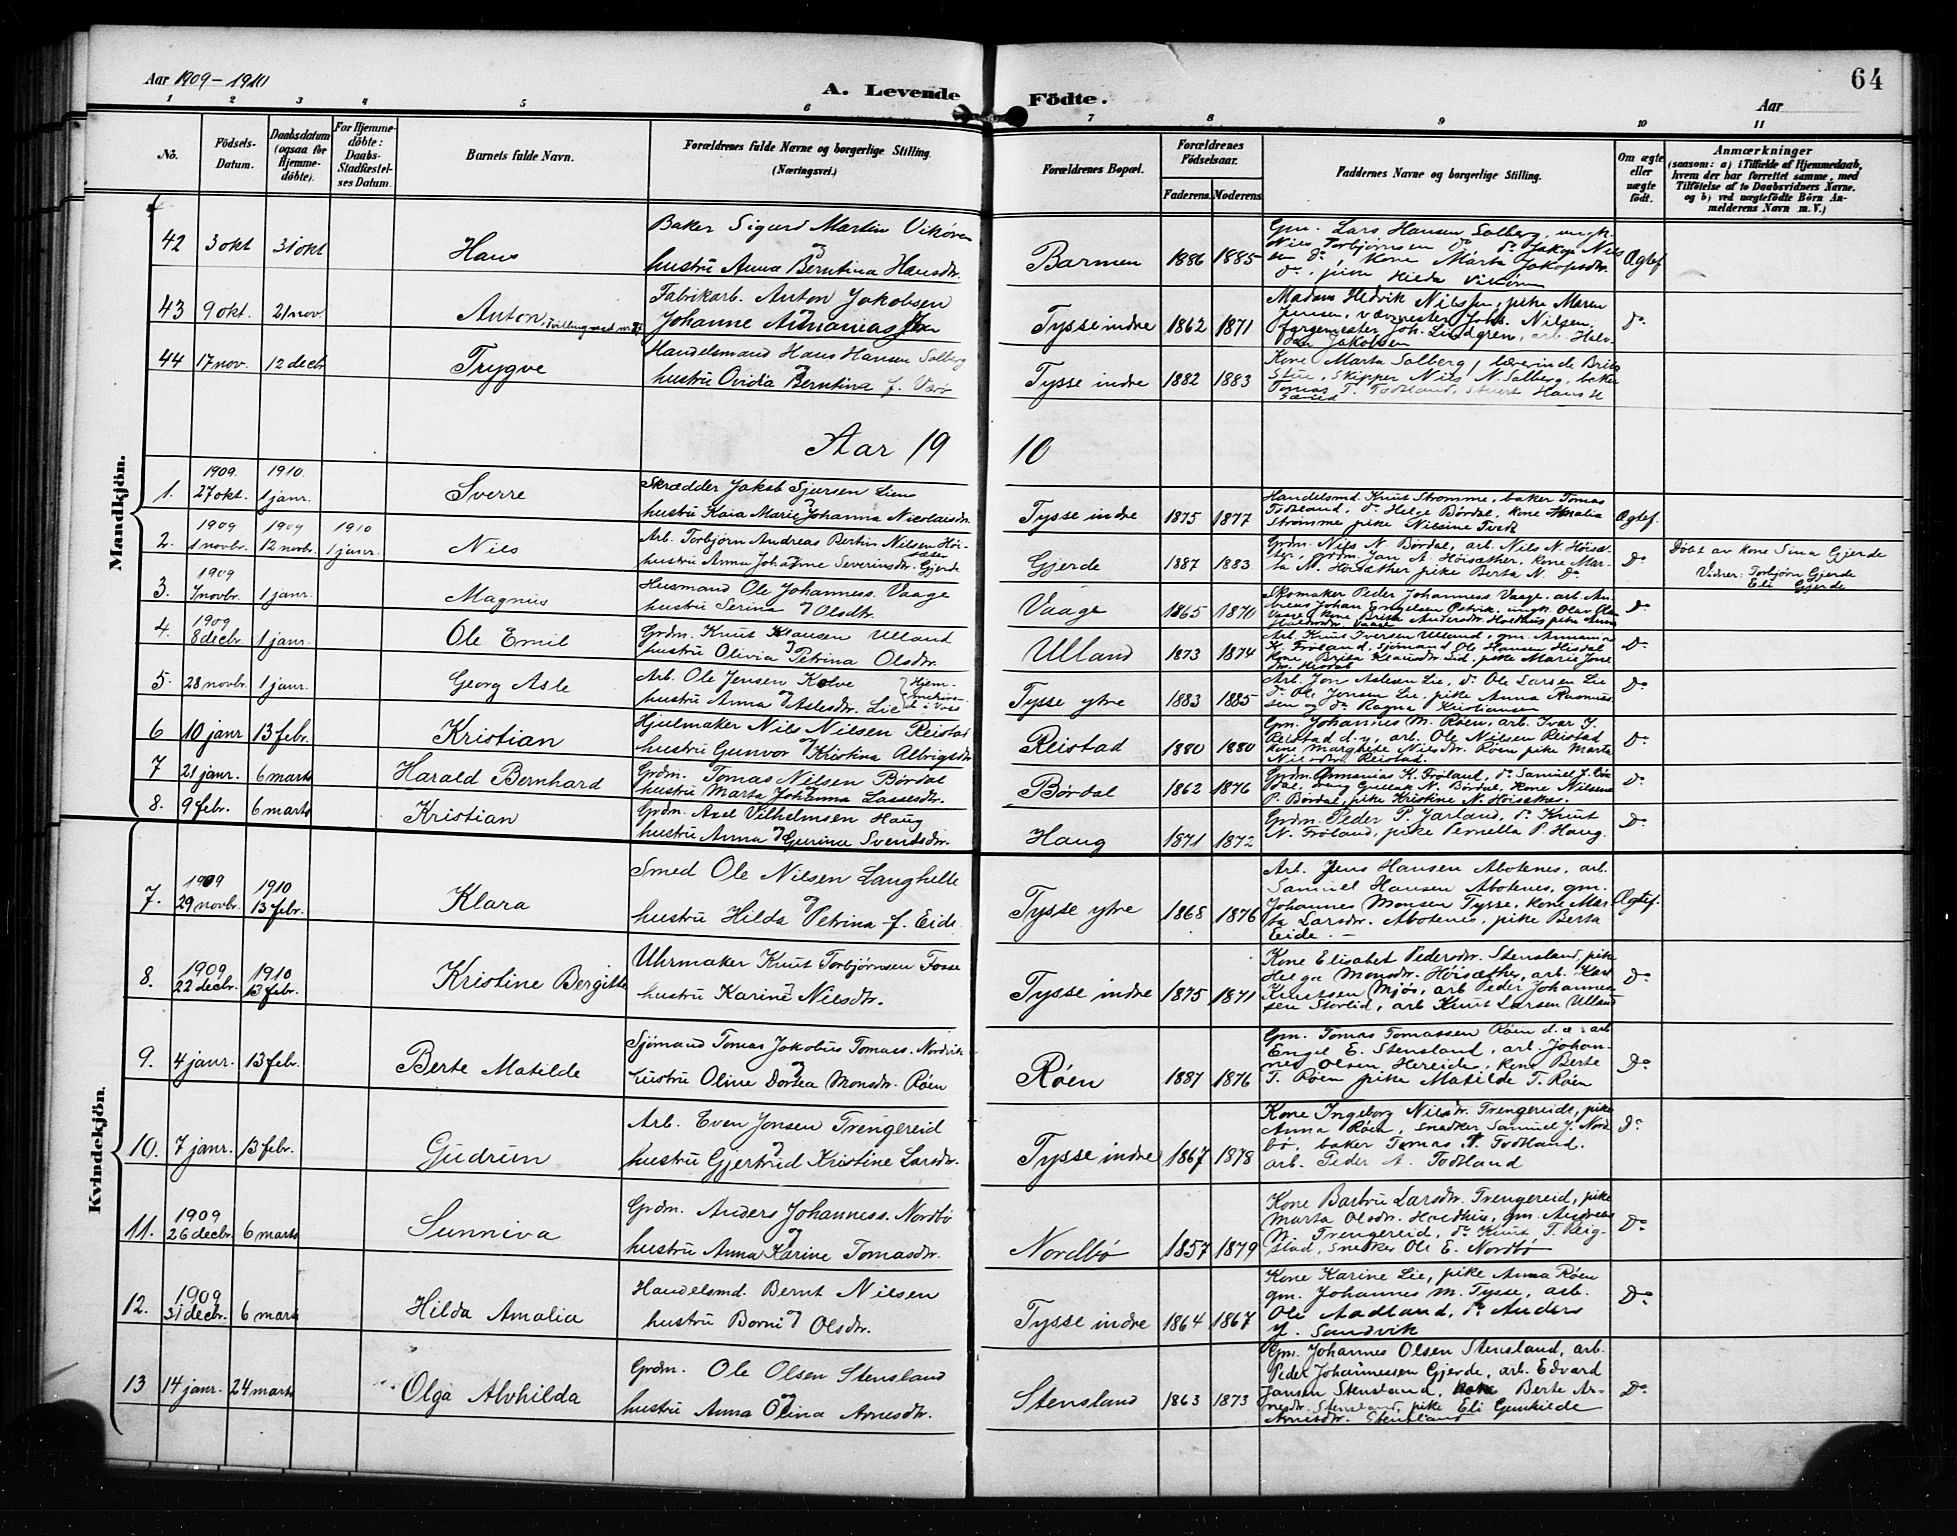 Aar 1909 – 1910
A. Levende Födte.
64
Aar
1 2 3 4 5 6 7 8 9 10 11
No.
Födsels-Datum.
Daabsdatum (ogsaa for Hjemme-döbte).
For Hjemme-döbte: Daabs-Stadfæstel-ses Datum.
Barnets fulde Navn.
Forældrenes fulde Navne og borgerlige Stilling. (Næringsvei.)
Forældrenes Bopæl.
Forældrenes Födselsaar.
Faderens. Moderens.
Faddernes Navne og borgerlige Stilling.
Om ægte eller uægte födt.
Anmærkninger
(saasom: a) i Tilfælde af Hjemmedaab, hvem der har forrettet samme, med Tilföielse af to Daabsvidners Navne. og b) ved uægtefödte Börn An-melderens Navn m. V.)
Mandkjön.
42 3 okt 31 okt Hans
Baker Sigurd Martin Vikøren
og
hustru Anna Berntina Hansdtr.
Barmen 1886 1885
Gm. Lars Hansen Solberg, ungk.
Nils Torbjørnsen do, do Jakop Nils
sen do, kone Marta Jakopsdtr.
do, pike Hilda Vikøren
Ægtef
43 9 okt. 21 nov. Anton, Tvilling med nr.
Fabrikarb. Anton Jakobsen
Johanne Annanias
Tysse indre 1862 1871
Madam Hedvik Nilssen, pike Maren
Jensen, vævmester Joh. Nilsen,
fargemester Joh. Lindgren, arb. Halv-
dan Jakobsen
do
44 17 nov. 12 decbr Trygve
Handelsmand Hans Hansen Solberg
og
hustru Ovidia Berntina f. Værø
Tysse indre 1882 1883
Kone Marta Solberg, lærerinde Brita
Stue, skipper Nils N. Solberg, baker
Tomas T. Todland, stuert Hans H
Aar 1910
1. 1909 27 okt. 1910 1 janr. Sverre
Skrædder Jakob Sjursen Lien
og
hustru Kaia Marie Johanna Nicolaisdtr.
Tysse indre 1875 1877
Handelsmd. Knut Strømme, baker Tomas
Todland, do Helge Børdal, kone Amalia
Strømme pike Nilsine Tvedt
Ægtef.
2. 1909 1 novbr. 1909 12 novbr. 1910 1 janr. Nils
Arb. Torbjørn Andreas Bertin Nilsen Høi-
sæter
hustru Anna Johanne Severinsdtr. Gjerde
Gjerde 1887 1883
Grdm. Nils N. Børdal, arb. Nils N. Høisæ-
ter, grdm. Jan A. Høisæther, kone Mar-
ta N. Høisæther pike Berta N. Do
Do
Døbt av kone Sina Gjerde
Vidner: Torbjørn Gjerde
Eli Gjerde
3. 1909 novbr. 1 janr. Magnus
Husmand Ole Johanness. Vaage
og
hustru Serina Olsdtr.
Vaage 1865 1870
Skomaker Peder Johanness. Vaage, arb. An-
dreas Johan Engelsen Petvik, ungk. Olav Ols.
Vaage kone Brita Andersdtr. Holdhus pike Anna
Vaage
Do
4. 1909 8 decbr. 1 janr. Ole Emil
Grdm. Knut Klausen Ulland
og
hustru Olivia Petrina Olsdtr.
Ulland 1873 1874
Arb. Knut Iversen Ulland, gm. Annanias
K. Frøland, sjømand Ole Hansen Hisdal
kone Brita Klausdtr. Lid, pike Marie Jone
dtr. Hisdal
Do
5. 28 novbr. 1 janr. Georg Asle
Arb. Ole Jensen Kolve
og
hustru Anna Aslesdtr. Lie
Tysse ytre 1883 1885
Arb. Jon Aslesen Lie, do Ole Larsen Lie
do Ole Jonsen Lie, pike Anna Rasmus
sen og do Ragna Kristiansen
Do
6 10 janr 13 febr. Kristian
Hjulmaker Nils Nilsen Reistad
og
hustru Gunvor Kristina Albrigtsdtr.
Reistad 1880 1880
Gm. Johannes M. Røen, arb. Ivar J.
Reistad d.y, arb. Ole Nilsen Reistad
kone Marghete Nilsdtr. Røen pike Marta
Nilsdtr. Reistad.
Do
7 21 janr. 6 marts Harald Bernhard
Grdm. Tomas Nilsen Børdal
og
hustru Marta Johanna Lassesdtr.
Børdal 1862 1876
Grdm. Annanias K. Frøland, do Samuel J. Bør
dal, dreng Gullak N. Børdal, kone Nilsina
P. Børdal, pike Kristine N. Høisæther.
Do
8. 9 febr. 6 marts Kristian
Grdm. Axel Vilhelmsen Haug
og
hustru Anna Gurine Svendsdtr.
Haug 1871 1872
Grdm. Peder P. Jarland, do Knut
N. Frøland, pike Pernella P. Haug.
Do
Kvindekjön
7. 1909 29 novbr. 1910 13 febr. Klara
Smed Ole Nilsen Langhelle
og
hustru Hilda Petrina f. Eide
Tysse ytre 1868 1876
Arb. Jens Hansen Abotenes, arb.
Samuel Hansen Abotenes, gm.
Johannes Monsen Tysse, kone Mar-
ta Larsdtr. Abotenes, pike Berta
Eide. –
Ægtef.
8. 1909 22 decbr. 1910 13 febr. Kristine Bergitte
Uhrmaker Knut Torbjørnsen Fosse
og
hustru Karine Nilsdtr.
Tysse indre 1875 1871
Kone Elisabet Pedersdtr. Stensland, pike
Helga Monsdtr. Høisæther, arb. Karl
Knutsen Mjøs, arb Peder Johannes
sen Storlid, arb Knut Larsen Ulland
Do
9. 4 janr. 13 febr. Berte Matilde
Sjømand Tomas Jakobus Tomass. Nordvik
og
hustru Oline Dortea Monsdtr. Røen
Røen 1887 1876
Gm. Tomas Tomassen Røen d.æ. arb
Engel E. Stensland, arb. Johan-
nes Olsen Hereide, kone Berte
T. Røen pike Matilde T. Røen
Do
10. 7 janr. 13 febr. Gudrun
Arb. Even Jonsen Trengereid
og
hustru Gjertrud Kristine Larsdtr.
Tysse indre 1867 1878
Kone Ingeborg Nilsdtr. Trengereide, pike
Anna Røen, snedker Samuel J. Nord
bø, baker Tomas T. Todland.
arb. Peder A. Todland
Do
11. 1909 26 decbr. 6 marts Sunniva
Grdm. Anders Johanness. Nordbø
og
hustru Anna Karine Tomasdtr.
Nordbø 1857 1879
Kone Barbru Larsdtr. Trengereid, pike
Marta Olsdtr. Holdhus, gm. Andreas
M. Trengereid, do Knut T. Reig-
stad, snedker Ole E. Nordbø
Do
12. 1909 31 decbr. 6 marts Hilda Amalia
Handelsmd. Bernt Nilsen
og
hustru Borni Olsdtr.
Tysse indre 1864 1867
Kone Karine Lie, pike Anna Røen
gm. Johannes M. Tysse, arb.
Ole Aadland, do Anders
J. Sandvik
Do
13 14 janr. 24 marts Olga Alvhilda
Grdm. Ole Olsen Stensland
og
hustru Anna Olina Arnesdtr.
Stensland 1863 1873
Gm. Johannes Olsen Stensland, arb.
Peder Johannessen Gjerde, arb. Edvard
Jansen Stensland, kone Berte Ar-
nesdtr. Stensland, pike Eli Gunhilde
Arnesdtr. Stensland
Do